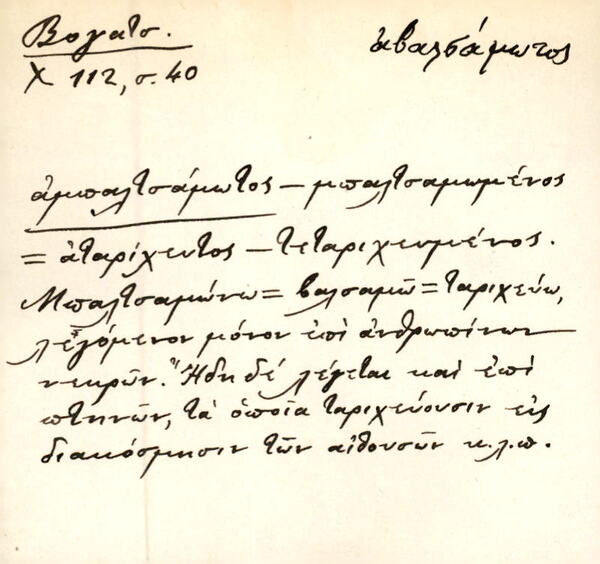 Βογατσ.
Χ 112, σ. 40
ἀβαλσάμωτος
ἀμπαλτσάμωτος – μπαλτσαμωμένος
= ἀταρίχευτος – τεταριχευμένος.
Μπαλτσαμώνω = βαλσαμῶ = ταριχεύω,
λεγόμενον μόνον ἐπὶ ἀνθρωπίνων
νεκρῶν. Ἤδη δέ λέγεται καὶ ἐπὶ
πτηνῶν, τὰ ὁποῖα ταριχεύουσιν εἰς
διακόσμησιν τῶν αἰθουσῶν κ.λ.π.